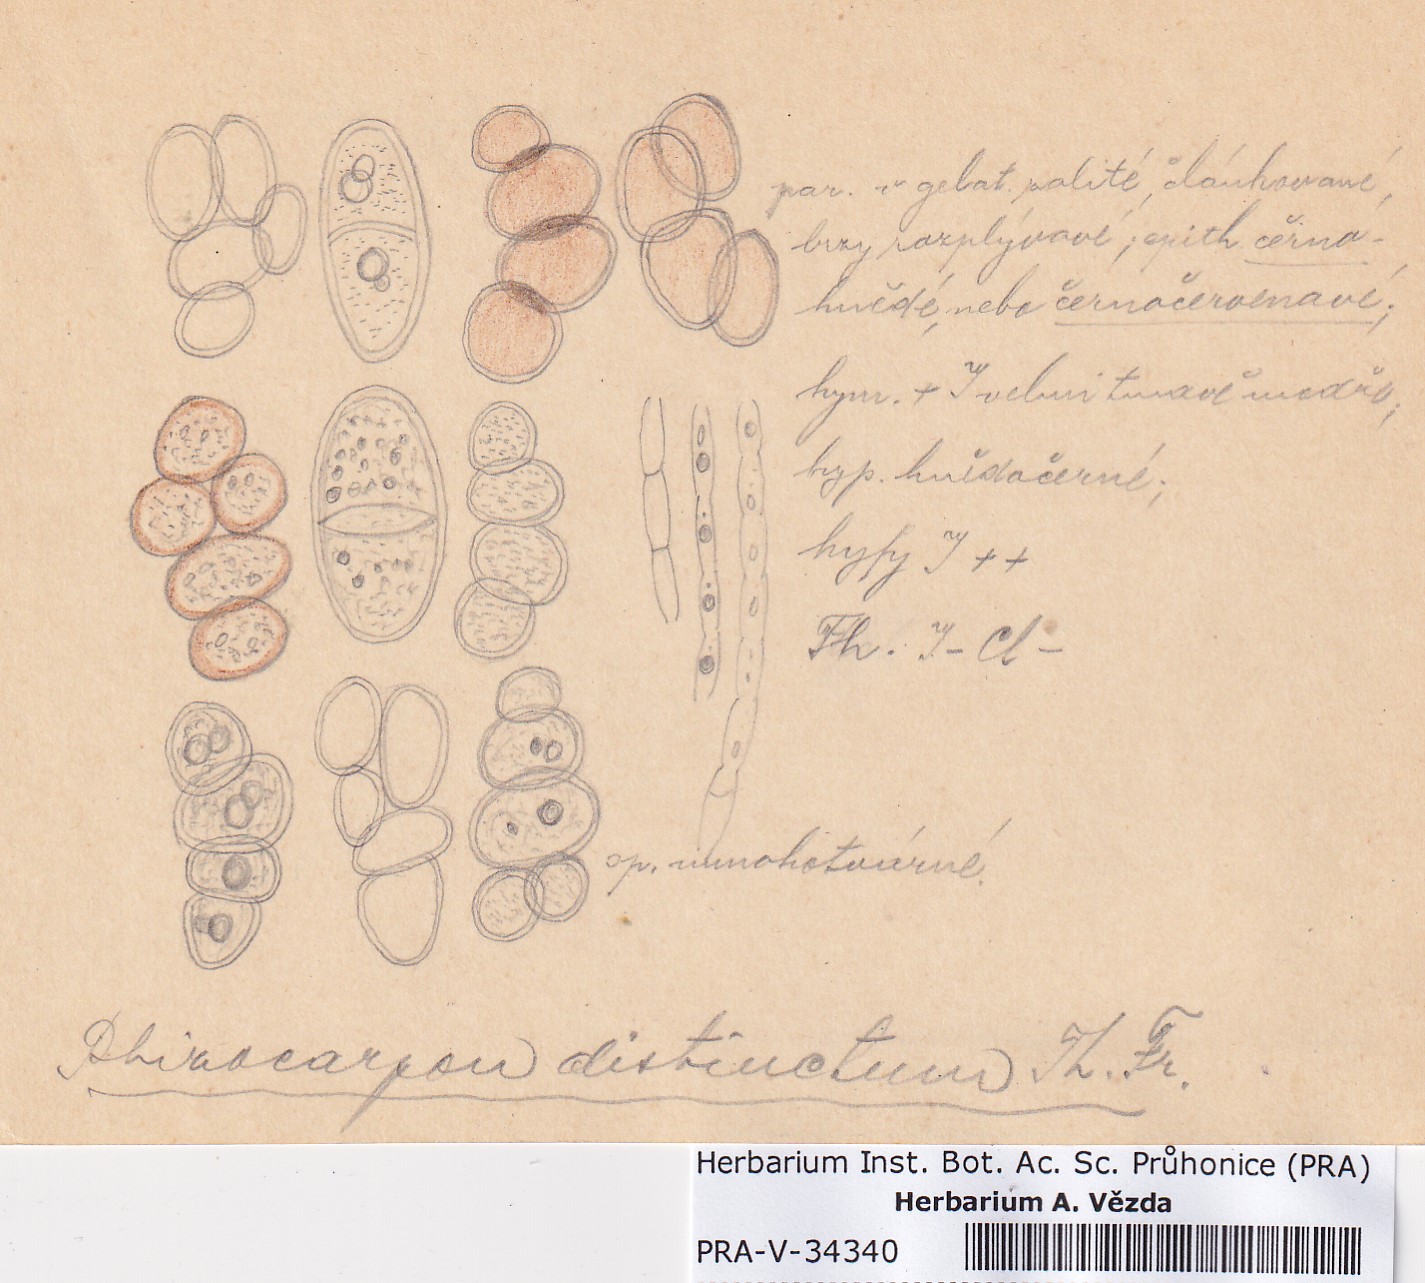 par. v gelat. polité, článkované,
brzy rozplývavé; epith. černo-
hnědé, nebo černočervenavé;
hym. + J velmi tmavě modře;
hyp. hnědočerné;
hyfy J + +
Th. J - Cl -
sp. mnohotvárné.
Rhizocarpon distinctum Th. Fr.
Herbarium Inst. Bot. Ac. Sc. Průhonice (PRA)
Herbarium A. Vězda
PRA-V-34340